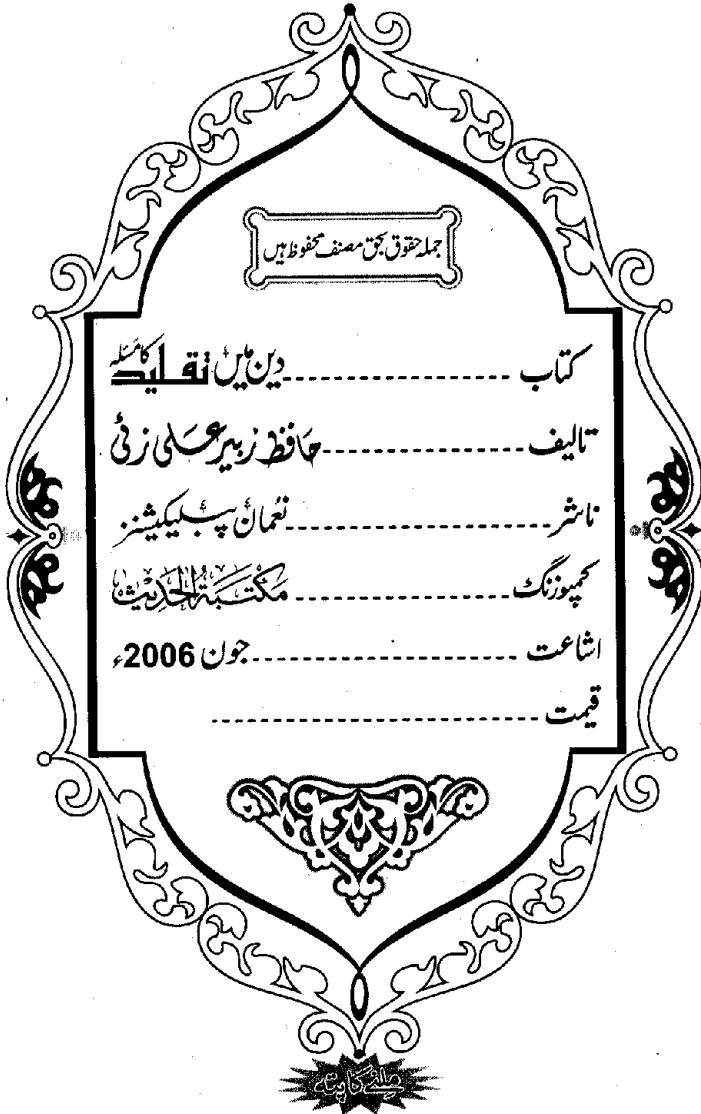 جملہ حقوق بحق مصنف محفوظ ہیں
کتاب ------------------ دین میں تقلید کا مسئلہ
تالیف ------------------ حافظ زبیر علی زئی
ناشر ------------------ نعمان پبلیکیشنز
کمپوزنگ ------------------ مکتبۃ الحدیث
اشاعت ------------------ جون 2006ء
قیمت ------------------
ملنے کا پتہ